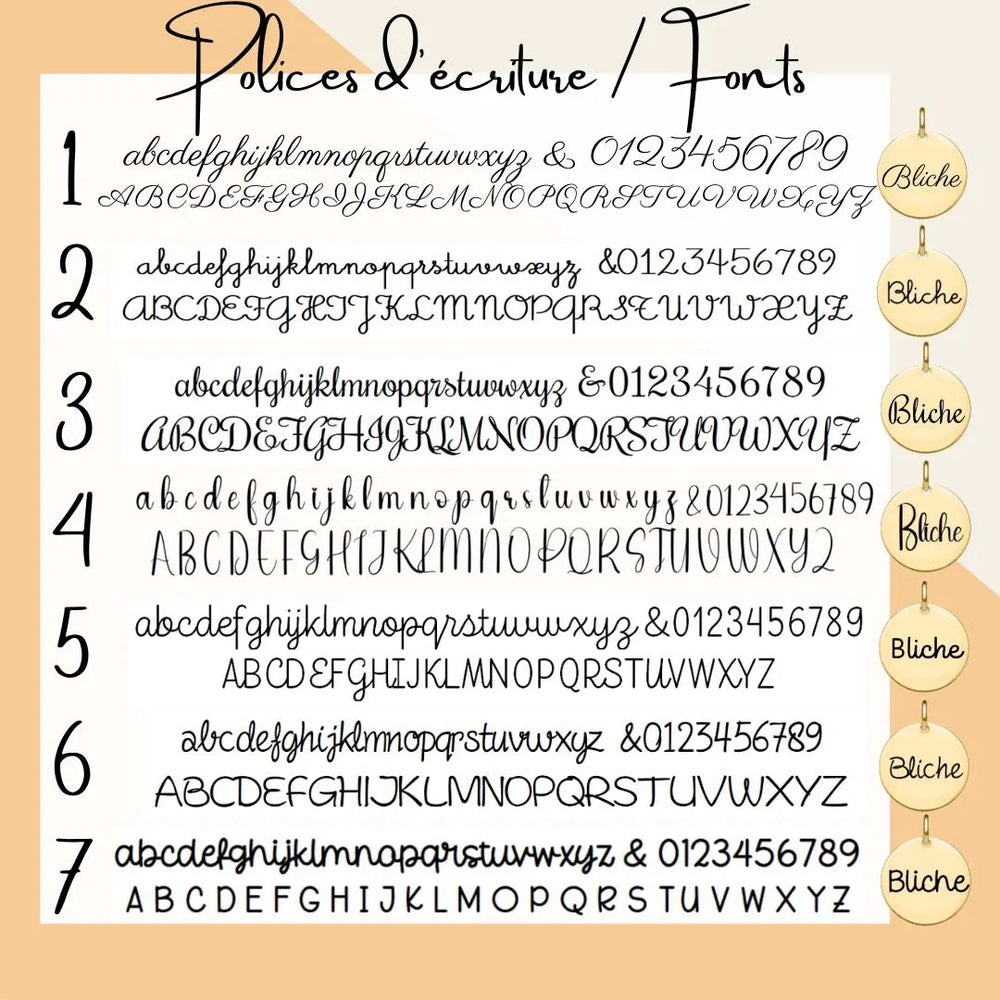 Polices d'écriture / Fonts
1
abcdefghijklmnopqrstuvwxyz & 0123456789
ABCDEFGHIJKLMNOPQRSTUVWXYZ
Bliche
2
abcdefghijklmnopqrstuvwxyz &0123456789
ABCDEFGHIJKLMNOPQRSTUVWXYZ
Bliche
3
abcdefghijklmnopqrstuvwxyz &0123456789
ABCDEFGHIJKLMNOPQRSTUVWXYZ
Bliche
4
abcdefghijklmnopqrstuvwxyz &0123456789
ABCDEFGHIJKLMNOPQRSTUVWXYZ
Bliche
5
abcdefghijklmnopqrstuvwxyz &0123456789
ABCDEFGHIJKLMNOPQRSTUVWXYZ
Bliche
6
abcdefghijklmnopqrstuvwxyz &0123456789
ABCDEFGHIJKLMNOPQRSTUVWXYZ
Bliche
7
abcdefghijklmnopqrstuvwxyz & 0123456789
A B C D E F G H I J K L M O P Q R S T U V W X Y Z
Bliche